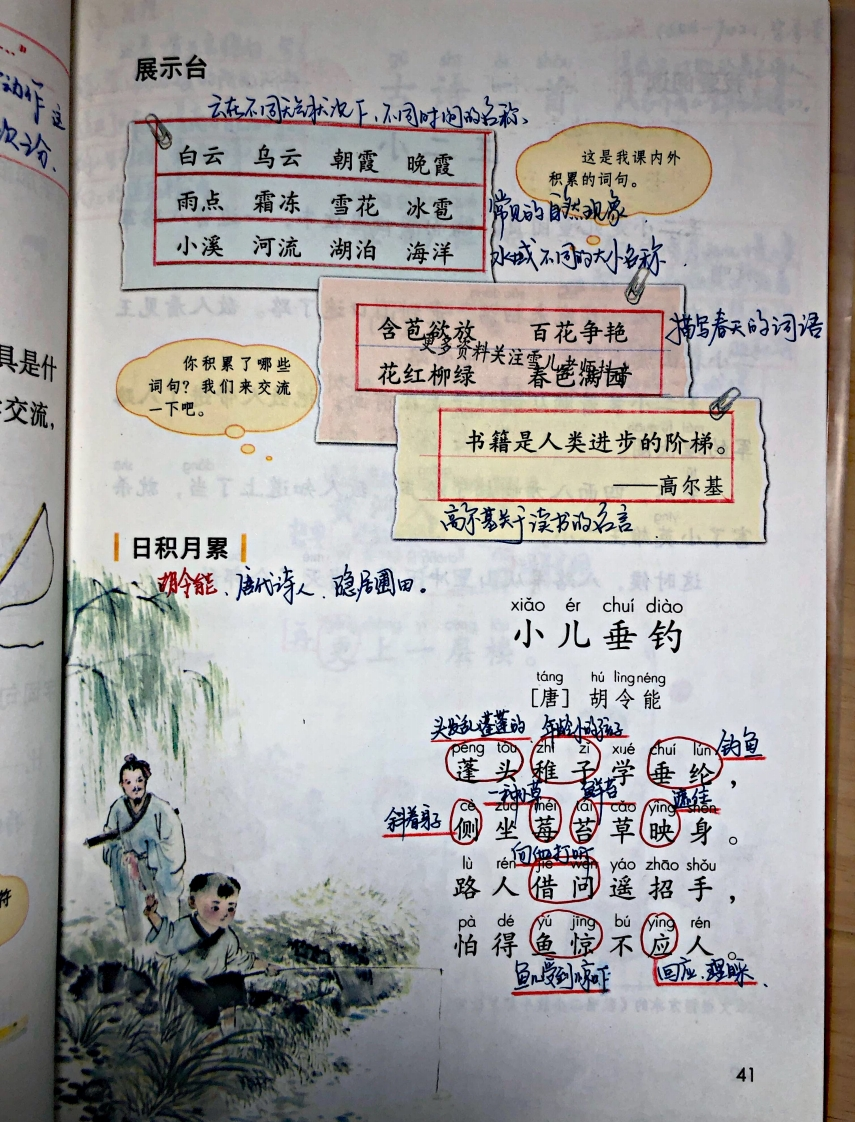 动作 这
次之分.
具是什
交流,
符
展示台
云在不同天气状况下,不同时间的名称.
白云 乌云 朝霞 晚霞
雨点 霜冻 雪花 冰雹
小溪 河流 湖泊 海洋
这是我课内外
积累的词句。
常见的自然现象
水域不同的大小名称.
含苞欲放 百花争艳
更多资料关注雪儿老师抖音
花红柳绿 春色满园
描写春天的词语
你积累了哪些
词句?我们来交流
一下吧。
书籍是人类进步的阶梯。
——高尔基
高尔基关于读书的名言
日积月累
胡令能、唐代诗人、隐居圃田。
xiǎo ér chuí diào
小儿垂钓
táng hú lìng néng
[唐] 胡令能
头发乱蓬蓬的 年龄小的孩子
钓鱼
péng tóu zhì zǐ xué chuí lún
蓬头稚子学垂纶,
一种野草 苔 遮住
斜着身子
cè zuò méi tái cǎo yìng shēn
侧坐莓苔草映身。
向他打听
lù rén jiè wèn yáo zhāo shǒu
路人借问遥招手,
pà dé yú jīng bú yìng rén
怕得鱼惊不应人。
鱼儿受到惊吓
回应、理睬.
41